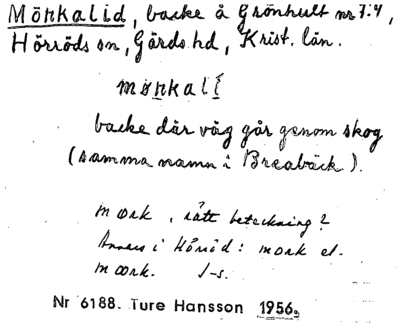 Mörkalid, backe å Grönhult nr 7:4,
Hörröds sn, Gärds hd, Krist. län.
backe där väg går genom skog
(samma namn i Breabäck.).
mœrk, rätt beteckning?
Annars i Hörröd: mork el.
mœrk. J-s.
Nr 6188. Ture Hansson 1956.